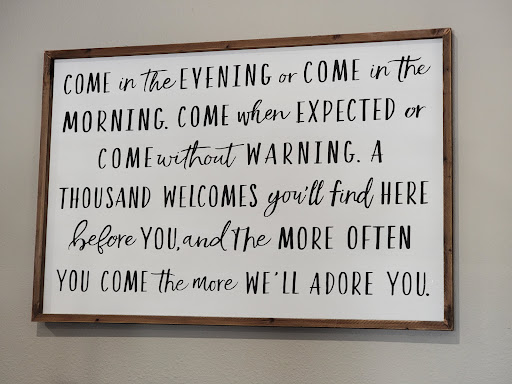 COME in the EVENING or COME in the
MORNING. COME when EXPECTED or
COME without WARNING. A
THOUSAND WELCOMES you'll find HERE
before YOU, and the MORE OFTEN
YOU COME the more WE'LL ADORE YOU.